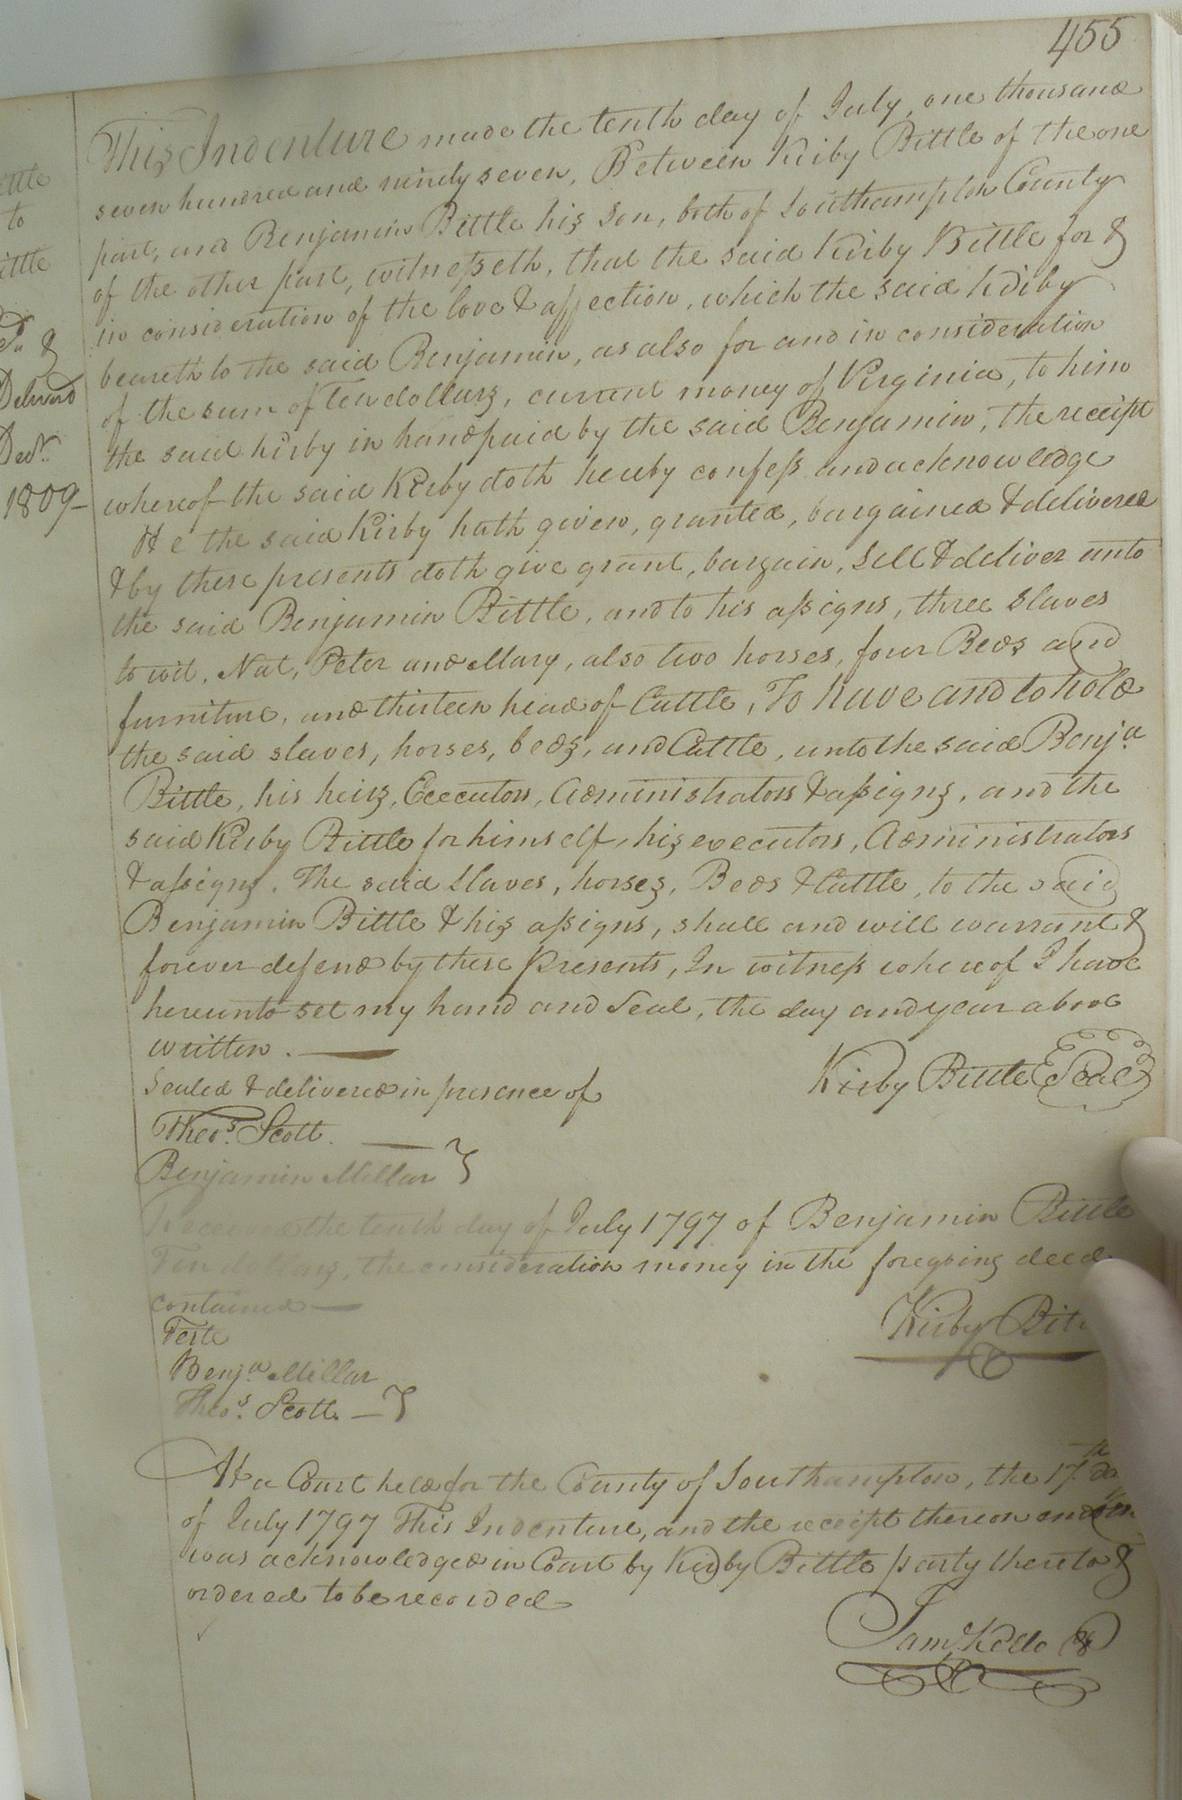 455
This Indenture made the tenth day of July, one thousand
seven hundred and ninety seven, Between Kirby Bittle of the one
part, and Benjamin Bittle his Son, both of Southampton County
of the other part, witnesseth, that the said Kirby Bittle for &
in consideration of the love & affection, which the said Kirby
beareth to the said Benjamin, as also for and in consideration
of the sum of Ten dollars, current money of Virginia, to him
the said Kirby in hand paid by the said Benjamin, the receipt
whereof the said Kirby doth hereby confess and acknowledge
He the said Kirby hath given, granted, bargained & delivered
& by these presents doth give grant, bargain, Sell & deliver unto
the said Benjamin Bittle, and to his assigns, three Slaves
to wit, Nat, Peter and Mary, also two horses, four Beds and
furniture, and thirteen head of Cattle, To have and to hold
the said slaves, horses, beds, and Cattle, unto the said Benja
Bittle, his heirs, Executors, Administrators & assigns, and the
said Kirby Bittle for himself, his executors, Administrators
& assigns, The said Slaves, horses, Beds & Cattle, to the said
Benjamin Bittle & his assigns, shall and will warrant &
forever defend by these presents, In witness whereof I have
hereunto set my hand and Seal, the day and year above
written.
Kirby Bittle Seal
Sealed & delivered in presence of
Theos. Scott
Benjamin Millar
Received the tenth day of July 1797 of Benjamin Bittle
Ten dollars, the consideration money in the foregoing deed
contained
Kirby
Teste
Benja Millar
Theos. Scott
At a Court held for the County of Southampton, the 17th
of July 1797 This Indenture, and the receipt thereon
was acknowledged in Court by Kirby Bittle party thereto &
ordered to be recorded
Saml. Kello
to
&
Deliver'd
1809